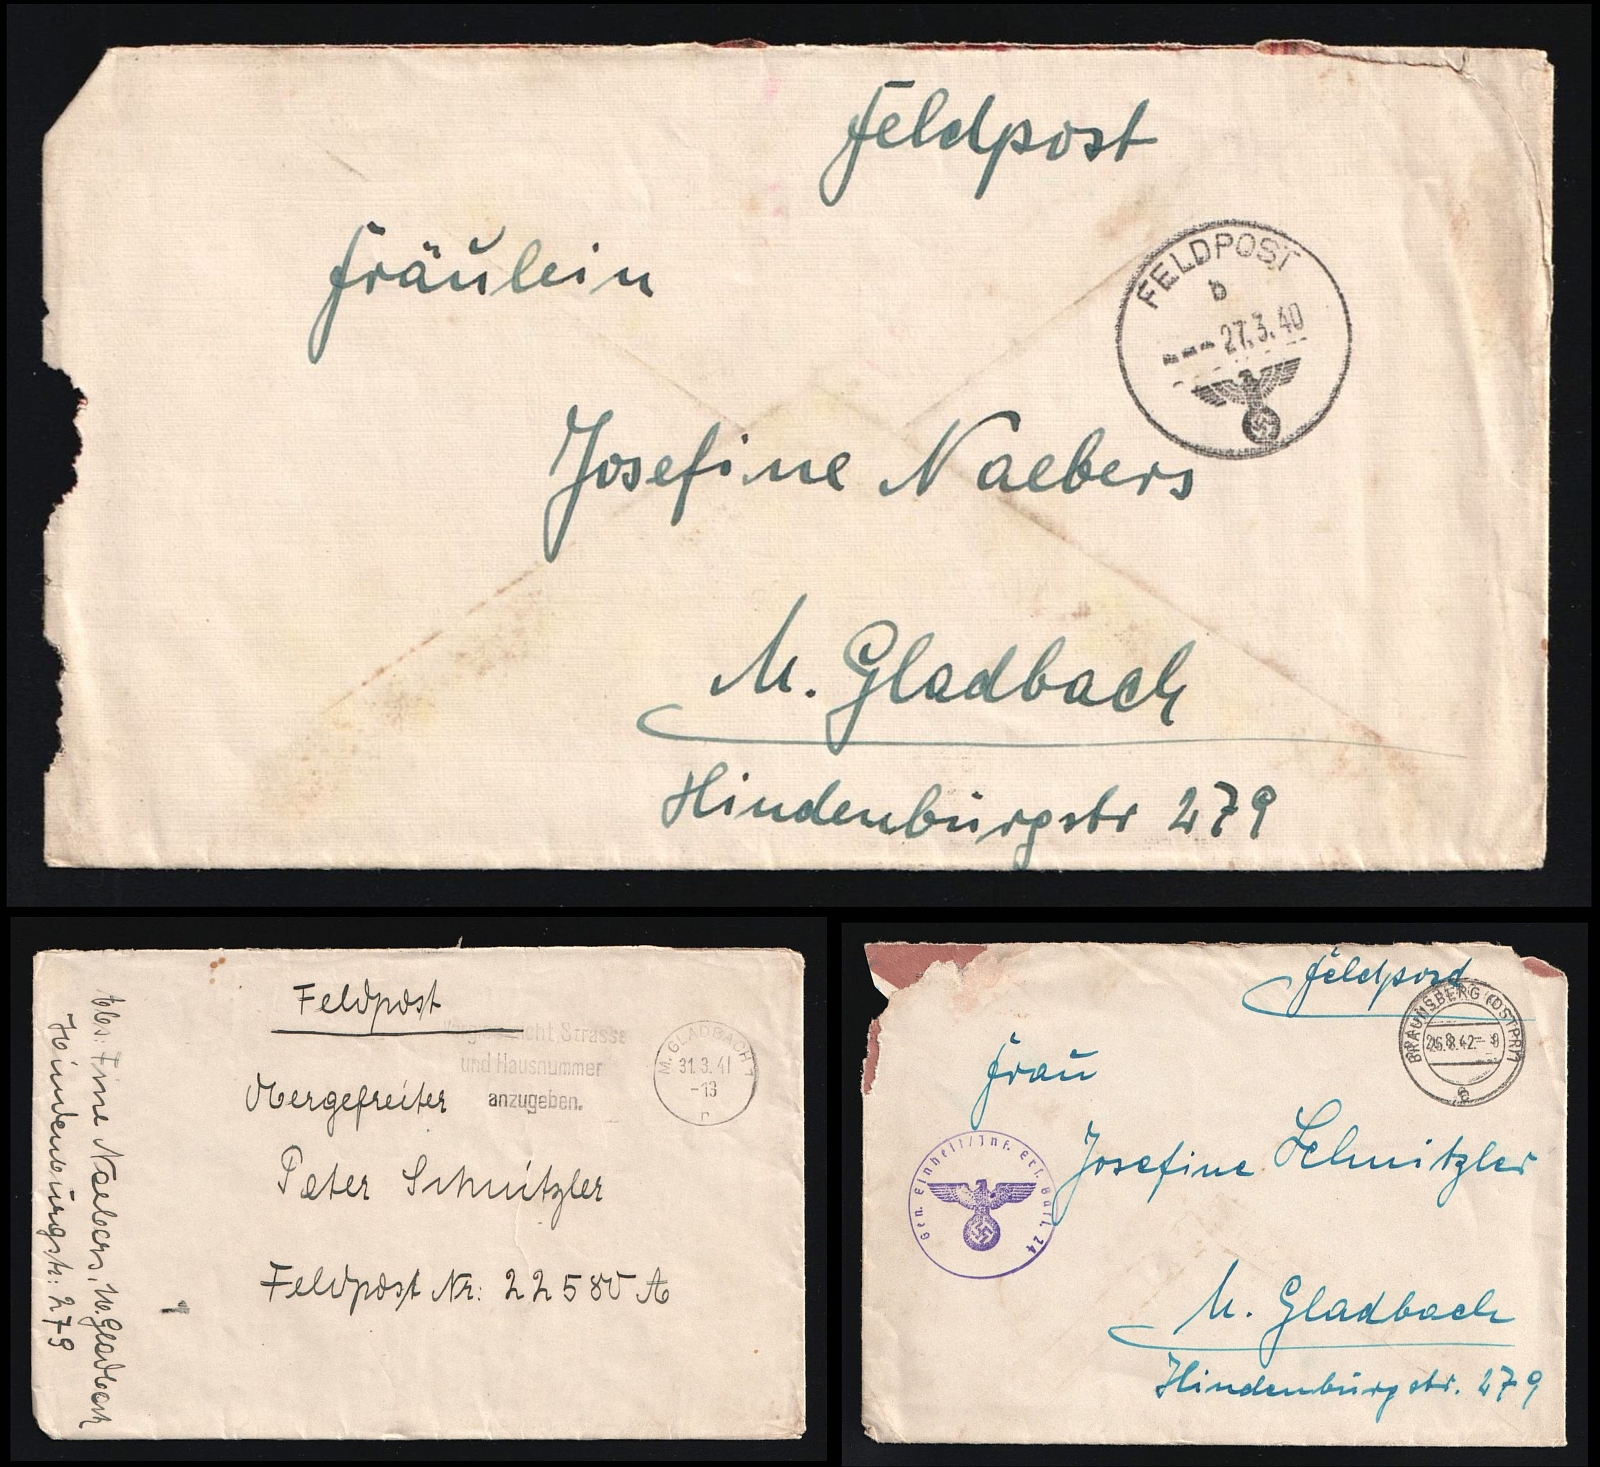 Feldpost
Fräulein
FELDPOST
b
--- 27.3.40
Josefine Naebers
M. Gladbach
Hindenburgstr 279
Feldpost
nicht Strasse
und Hausnummer
anzugeben.
M. GLADBACH 1
31.3.41
-13
r
Obergefreiter
Peter Schnitzler
Feldpost Nr: 22580 A
Abs: Fine Naebers, M. Gladbach
Hindenburgstr: 279
Feldpost
BRAUNSBERG (OSTPR)
26.8.42.- 8
e
Frau
Josefine Schnitzler
Gen. Einheit/Inf. Ers. Batl. 24
M. Gladbach
Hindenburgstr. 279